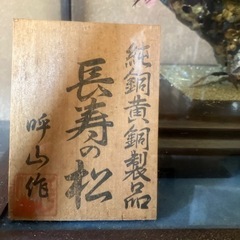 純銅黄銅製品
長寿の松
呼山作